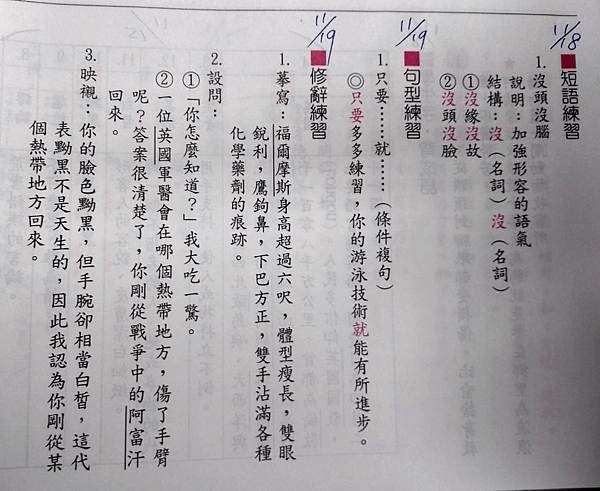 11/18
■短語練習
1. 沒頭沒腦
說明：加強形容的語氣
結構：沒（名詞）沒（名詞）
①沒緣沒故
②沒頭沒臉
11/19
■句型練習
1. 只要……就……（條件複句）
◎只要多多練習，你的游泳技術就能有所進步。
11/19
■修辭練習
1. 摹寫：福爾摩斯身高超過六呎，體型瘦長，雙眼
銳利，鷹鉤鼻，下巴方正，雙手沾滿各種
化學藥劑的痕跡。
2. 設問：
①「你怎麼知道？」我大吃一驚。
②一位英國軍醫會在哪個熱帶地方，傷了手臂
呢？答案很清楚了，你剛從戰爭中的阿富汗
回來。
3. 映襯：你的臉色黝黑，但手腕卻相當白皙，這代
表黝黑不是天生的，因此我認為你剛從某
個熱帶地方回來。